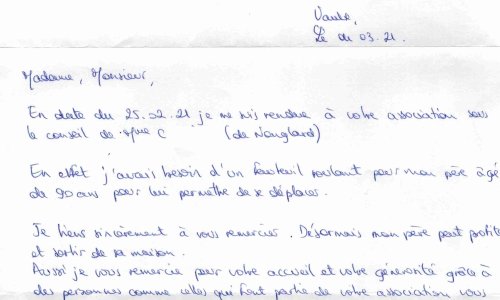 Vaulx,
Le 01.03.21.
Madame, Monsieur,
En date du 25.02.21 je me suis rendue à votre association sous
le conseil de Mme C (de Nonglard)
En effet j'avais besoin d'un fauteuil roulant pour mon père âgé
de 90 ans pour lui permettre de se déplacer.
Je tiens sincèrement à vous remercier. Désormais mon père peut profiter
et sortir de sa maison.
Aussi je vous remercie pour votre accueil et votre générosité grâce à
des personnes comme celles qui font partie de votre association vous